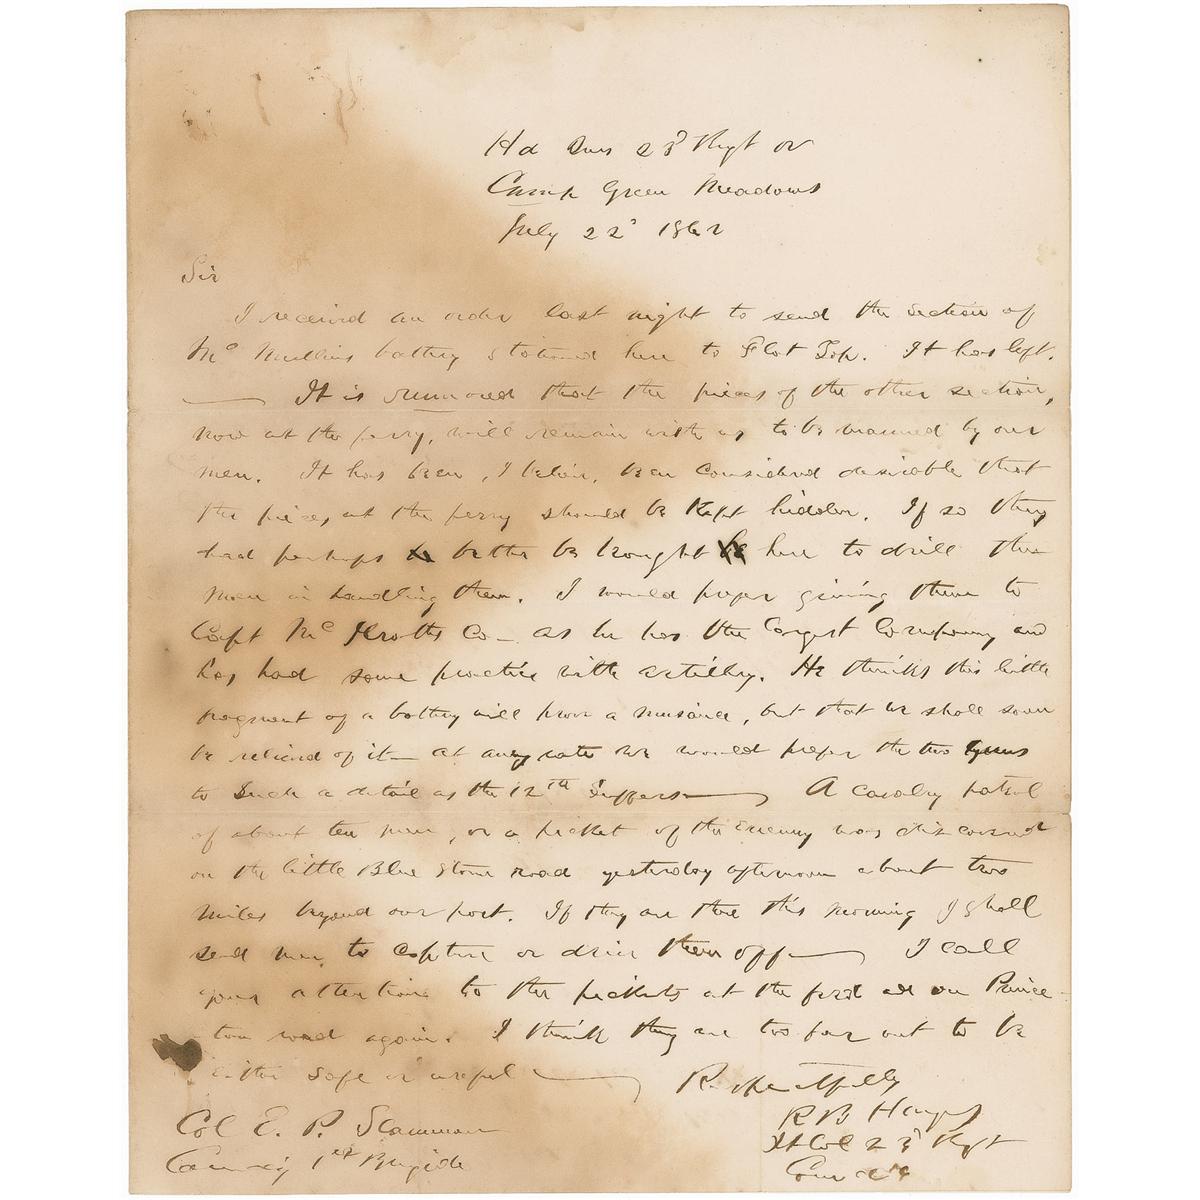 Hd Qurs 23d Regt OV
Camp Green Meadows
July 22d 1862
Sir
I received an order last night to send the section of
McMullins battery stationed here to Flat Top. It has left.
— It is rumored that the pieces of the other section,
now at the ferry, will remain with us to be manned by our
men. It has been, I believe, been considered desirable that
the pieces at the ferry should be kept hidden. If so they
had perhaps better be brought here to drill the
men in handling them. I would prefer giving them to
Capt McIlratts Co — as he has the largest company and
has had some practice with artillery. He thinks this little
fragment of a battery will prove a nuisance, but that we shall soon
be relieved of it — at any rate we would prefer the two guns
to such a detail as the 12th suffers — A cavalry patrol
of about ten men, or a picket of the enemy was discovered
on the little Blue Stone road yesterday afternoon about two
miles beyond our post. If they are there this morning I shall
send men to capture or drive them off — I call
your attention to the pickets at the ford and on Prince-
ton road again. I think they are too far out to be
either safe or useful —
Respectfully
R B Hayes
Lt Col 23d Regt
Comdg
Col E. P. Scammon
Commdg 1st Brigade